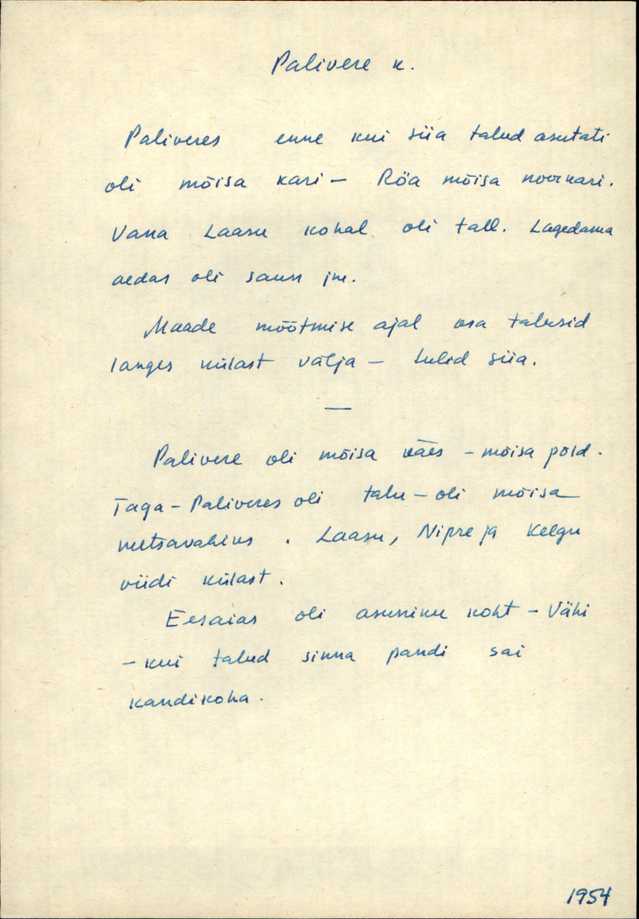 Palivere k.
Paliveres enne kui siia talud asutati
oli mõisa kari – Röa mõisa noorkari.
Vana Laasu kohal oli tall. Lagedama
aedas oli saun jm.
Maade mõõtmise ajal osa talusid
langes külast välja – tulid siia.
—
Palivere oli mõisa käes – mõisa põld.
Taga-Paliveres oli talu – oli mõisa
metsavahius. Laasu, Nipre ja Kelgu
viidi külast.
Eesaias oli asuniku koht – Vähi
– kui talud sinna pandi sai
kandikoha.
1954